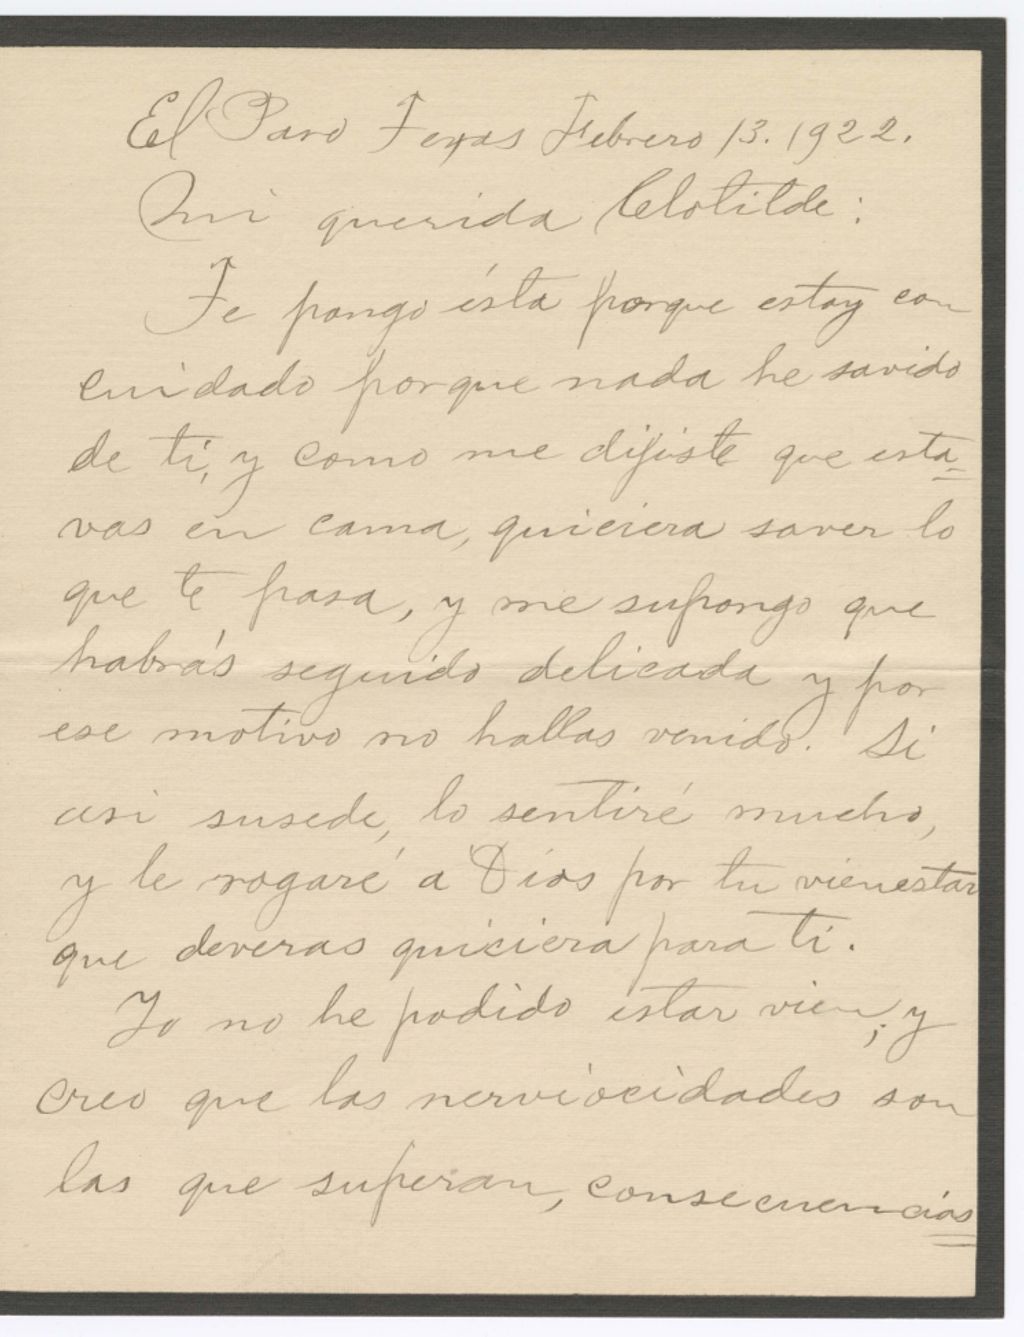 El Paso Texas Febrero 13. 1922.
Mi querida Clotilde:
Te pongo ésta porque estoy con
cuidado porque nada he savido
de ti, y como me dijiste que esta=
vas en cama, quiciera saver lo
que te pasa, y me supongo que
habrás seguido delicada y por
ese motivo no hallas venido. Si
asi susede, lo sentiré mucho,
y le rogaré a Dios por tu vienestar
que deveras quiciera para ti.
Yo no he podido estar vien; y
creo que las nerviocidades son
las que superan, consecuencias